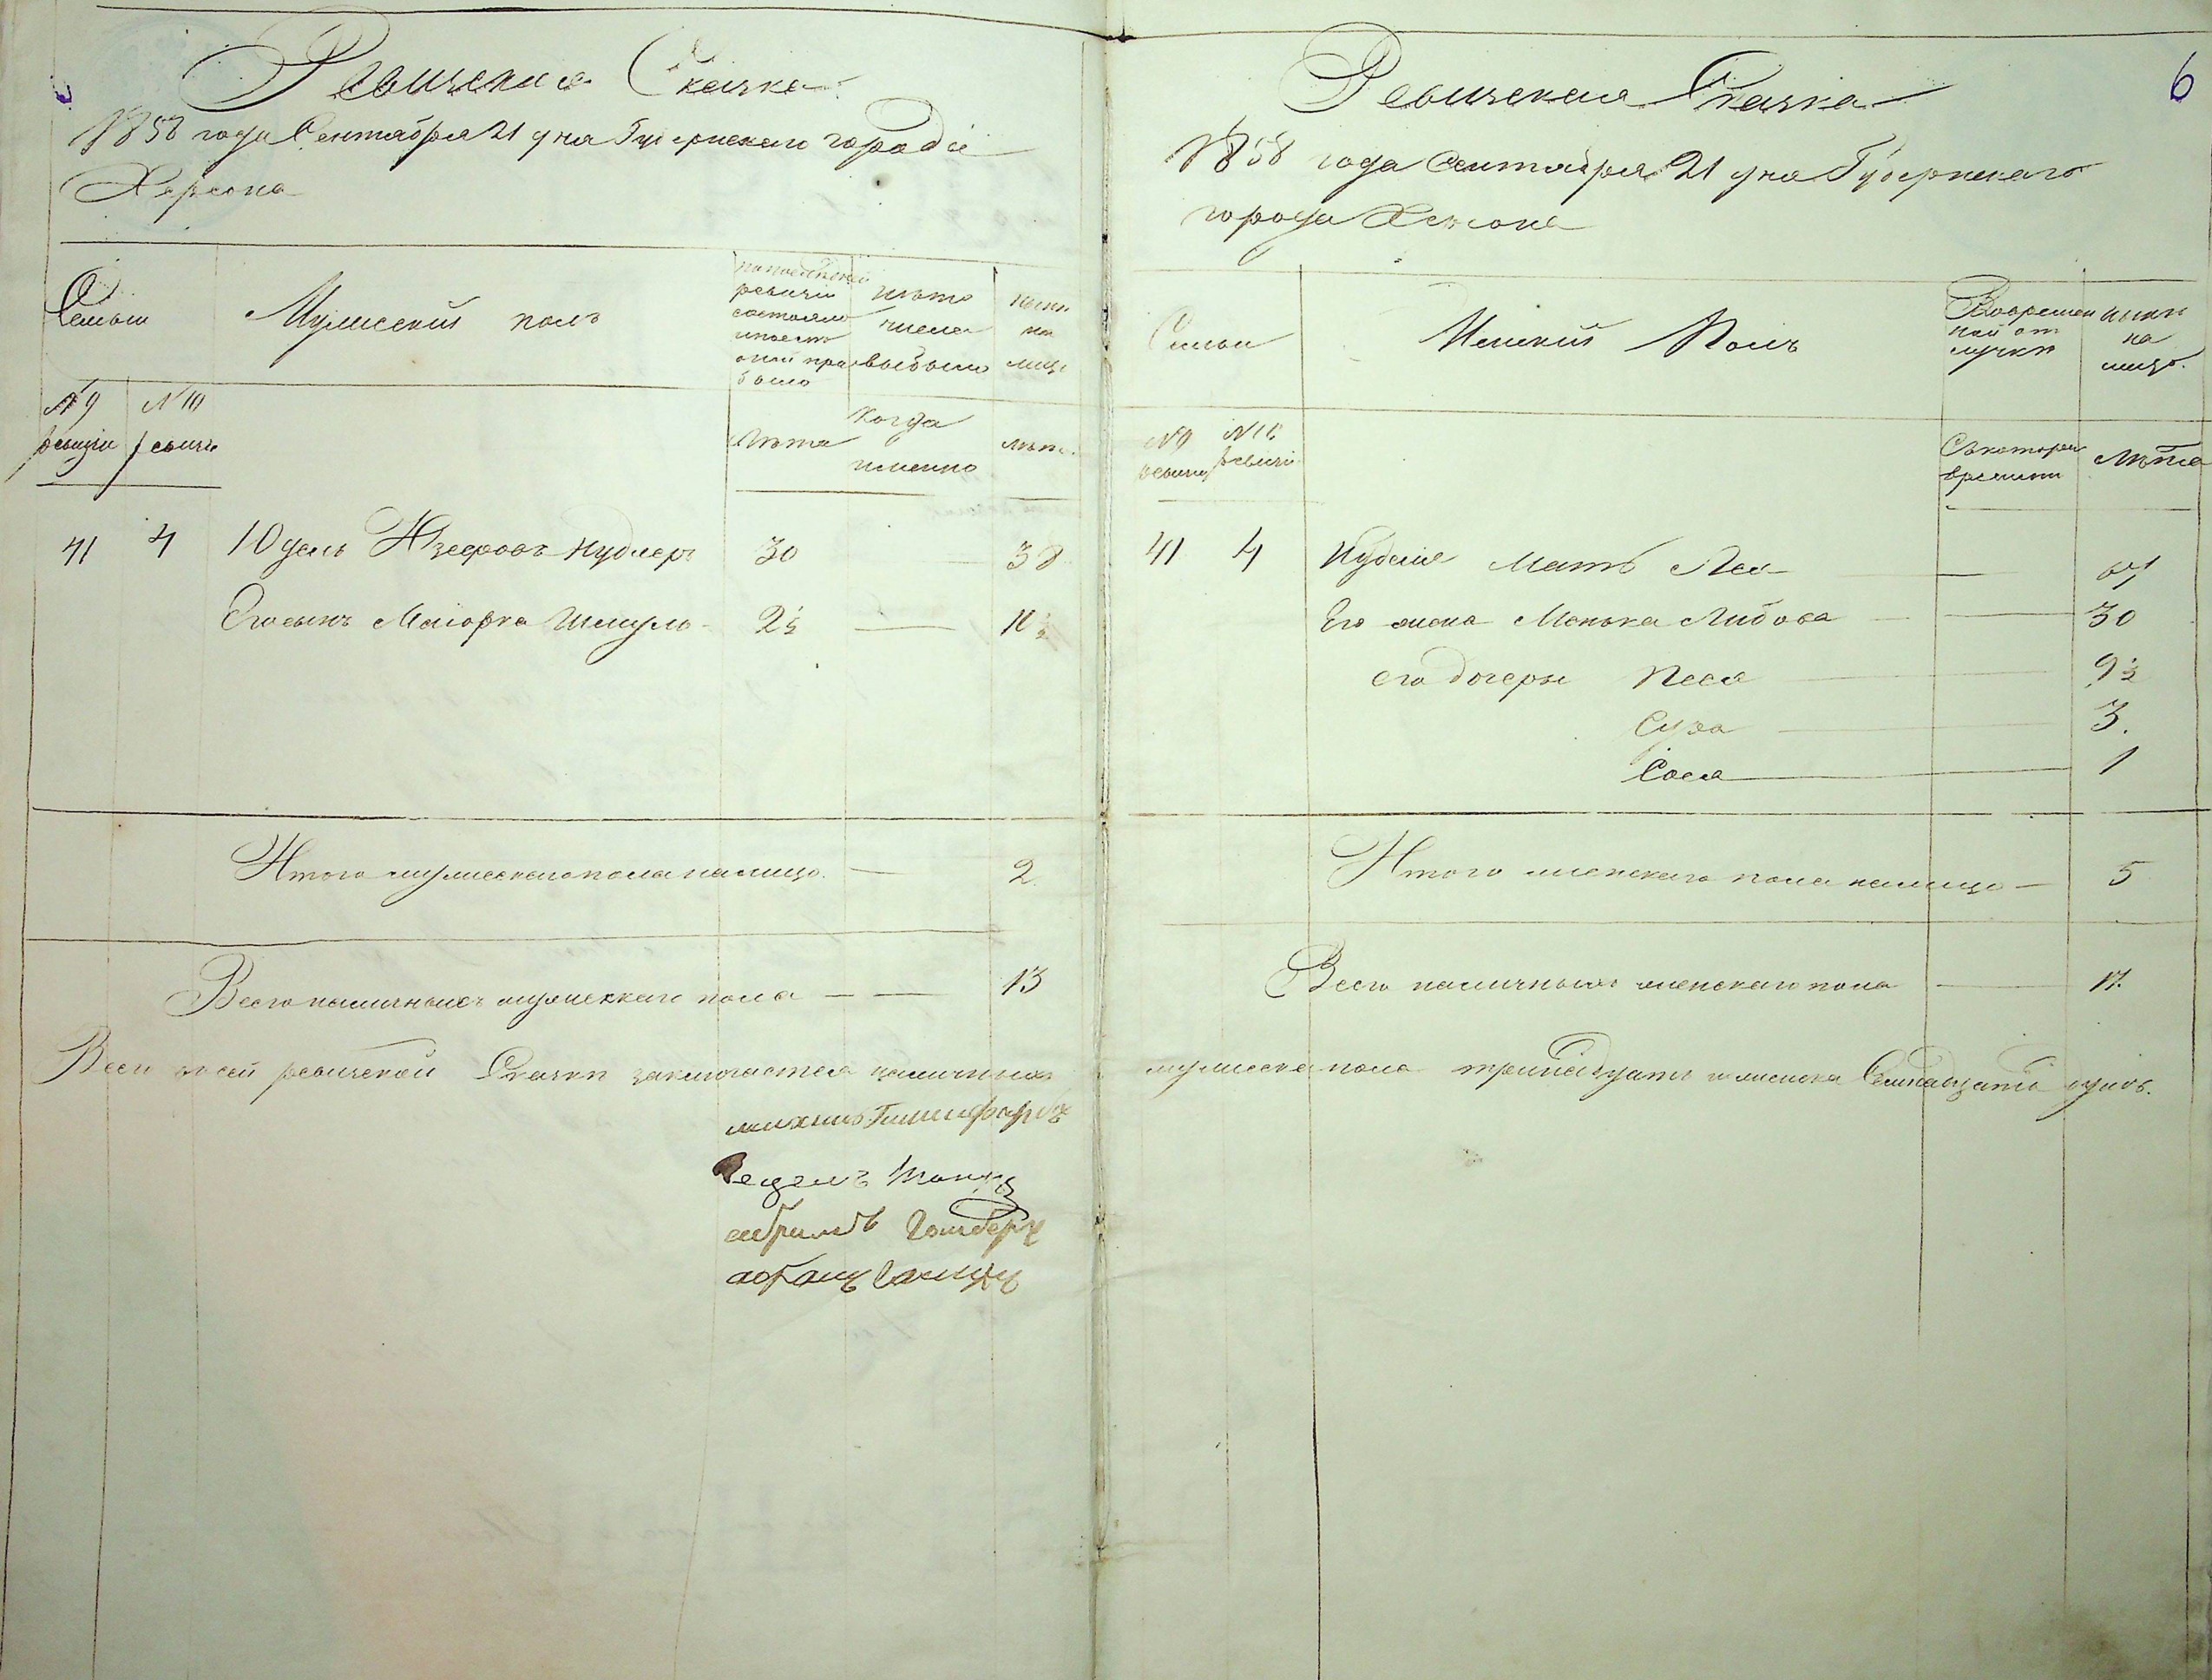 Ревизская Сказка
1858 года Сентября 21 дня Губернскаго города
Херсона
Семьи
Мужеский полъ
по последней ревизiи состояло и после оной прибыло
изъ того числа выбыло
ныне на лицо
№ 9 ревизiи
№ 10 ревизiи
Лета
Когда именно
лета
41 4 Юдель Юзефовъ Кудлеръ 30 — 38
Его сынъ Маiорка Шмуль 2½ — 10½
Итого мужескаго пола на лицо — 2
Всего наличныхъ мужескаго пола — — 13
Всего въ сей ревизской Сказки заключается наличныхъ
абрамъ Гольберг
6
Ревизская Сказка
1858 года Сентября 21 дня Губернскаго
города Херсона
Семьи
Женский Полъ
Во времен ной от лучки
ныне на лицо
№ 9 ревизiи
№ 10 ревизiи
Съ котораго времени
Лета
41 4 Мать Леа — 67
Его жена Монька Либова — 30
его дочеры Песя — 9½
Сура — 3.
Сося — 1
Итого женскаго пола на лицо — 5
Всего наличныхъ женскаго пола — 17.
мужеска пола тринадцать и женска Семнадцать душъ.